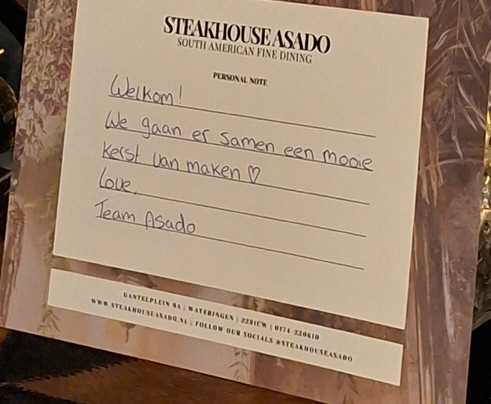 STEAKHOUSE ASADO
SOUTH AMERICAN FINE DINING
PERSONAL NOTE
Welkom!
We gaan er samen een mooie
Kerst van maken ♡
Love,
Team Asado
GANTELPLEIN 9A | WATERINGEN | 2291CW | 0174-220610
WWW.STEAKHOUSEASADO.NL | FOLLOW OUR SOCIALS @STEAKHOUSEASADO